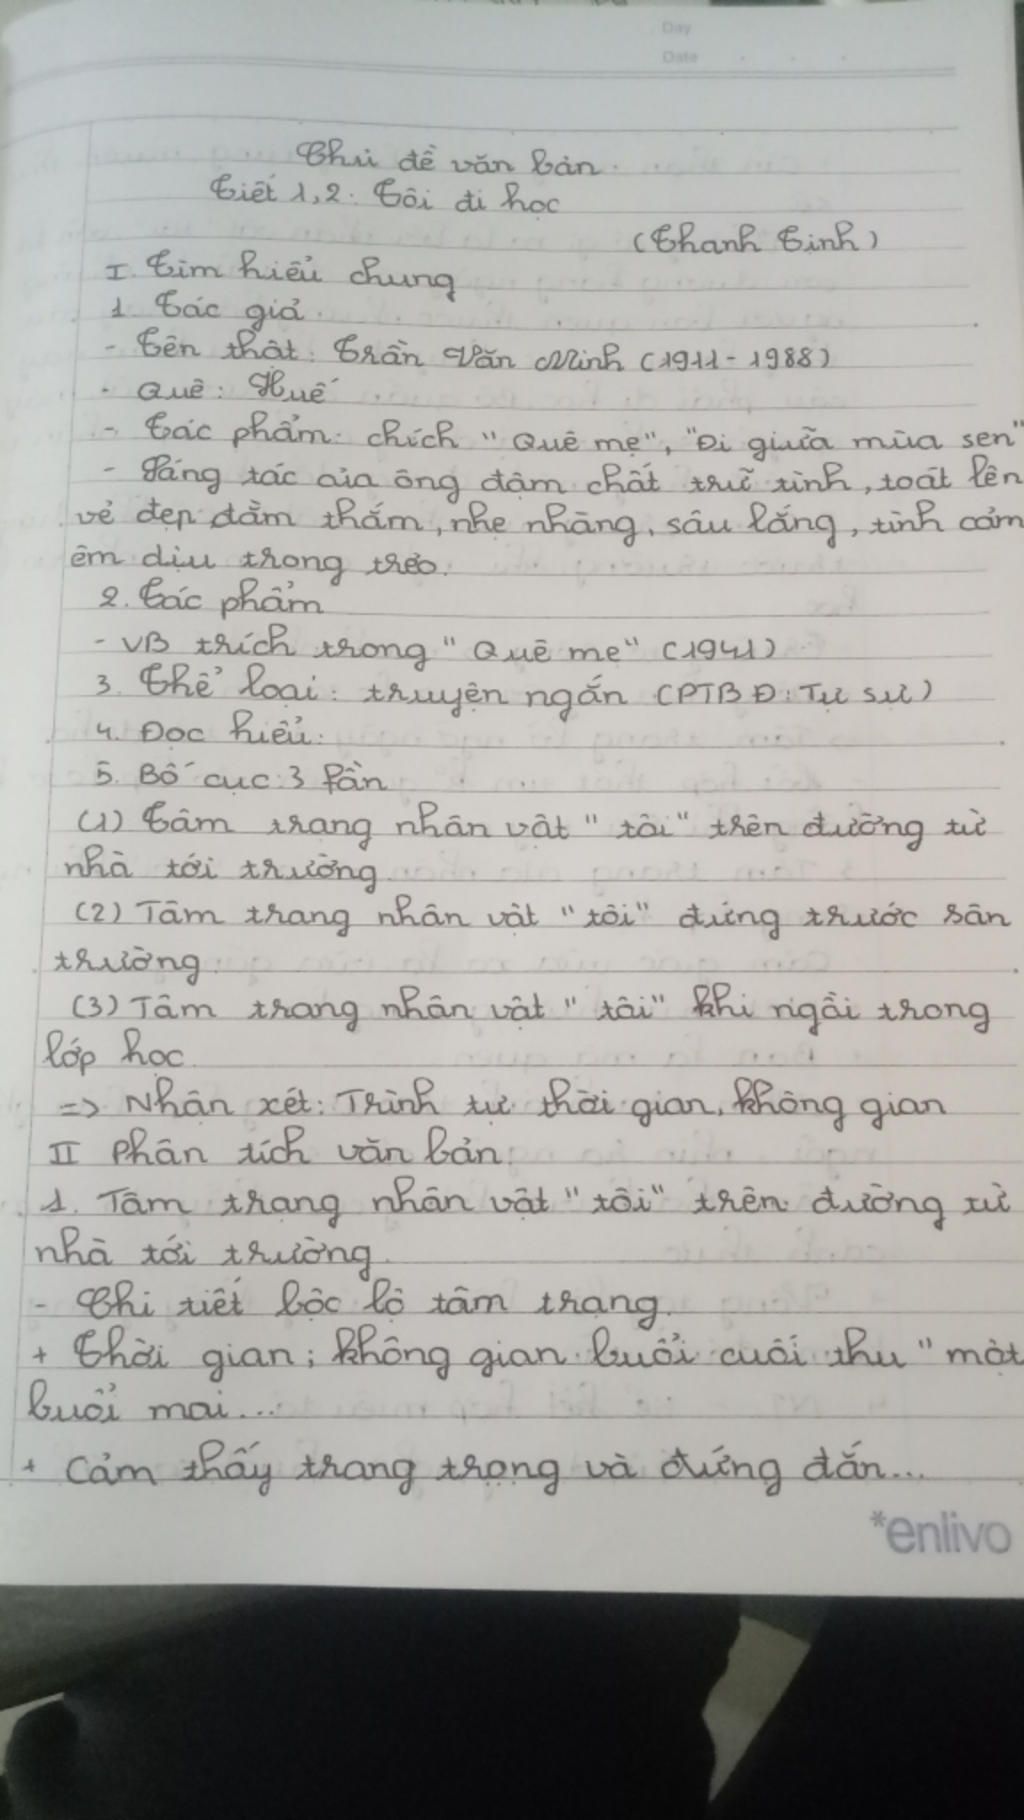 Day
Date
Chủ đề văn bản.
Tiết 1,2: Tôi đi học
(Thanh Tịnh)
I. Tìm hiểu chung
1. Tác giả.
- Tên thật: Trần Văn Ninh (1911-1988)
- Quê: Huế
- Tác phẩm: chích "Quê mẹ", "Đi giữa mùa sen"
- Sáng tác của ông đậm chất trữ tình, toát lên
vẻ đẹp đằm thắm, nhẹ nhàng, sâu lắng, tình cảm
êm dịu trong trẻo.
2. Tác phẩm
- VB trích trong "Quê mẹ" (1941)
3. Thể loại: truyện ngắn (PTBĐ: Tự sự)
4. Đọc hiểu:
5. Bố cục: 3 fần
(1) Tâm trạng nhân vật "tôi" trên đường từ
nhà tới trường.
(2) Tâm trang nhân vật "tôi" đứng trước sân
trường.
(3) Tâm trang nhân vật "tôi" khi ngồi trong
lớp học.
=> Nhận xét: Trình tự thời gian, không gian
II Phân tích văn bản.
1. Tâm trạng nhân vật "tôi" trên đường từ
nhà tới trường.
- Chi tiết bộc lộ tâm trạng.
+ Thời gian; không gian. buổi cuối thu "một
buổi mai...
+ Cảm thấy trang trọng và đứng đắn...
*enlivo